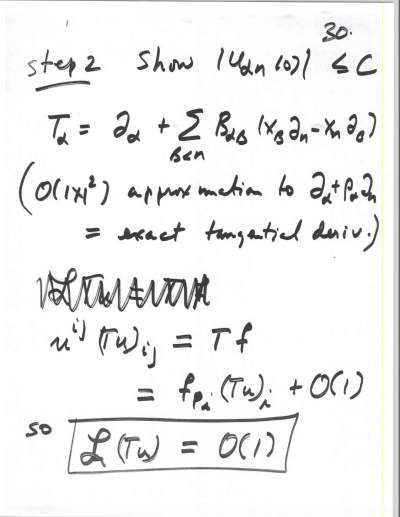 30.
step 2 show |u_{αn}(0)| ≤ C
T_α = ∂_α + Σ_{β<n} B_{αβ} (x_β ∂_n − x_n ∂_β)
(O(|x|²) approximation to ∂_α + ρ_α ∂_n
= exact tangential deriv.)
u^{ij} (Tu)_{ij} = T f
= f_{p_i} (Tu)_i + O(1)
so ℒ(Tu) = O(1)